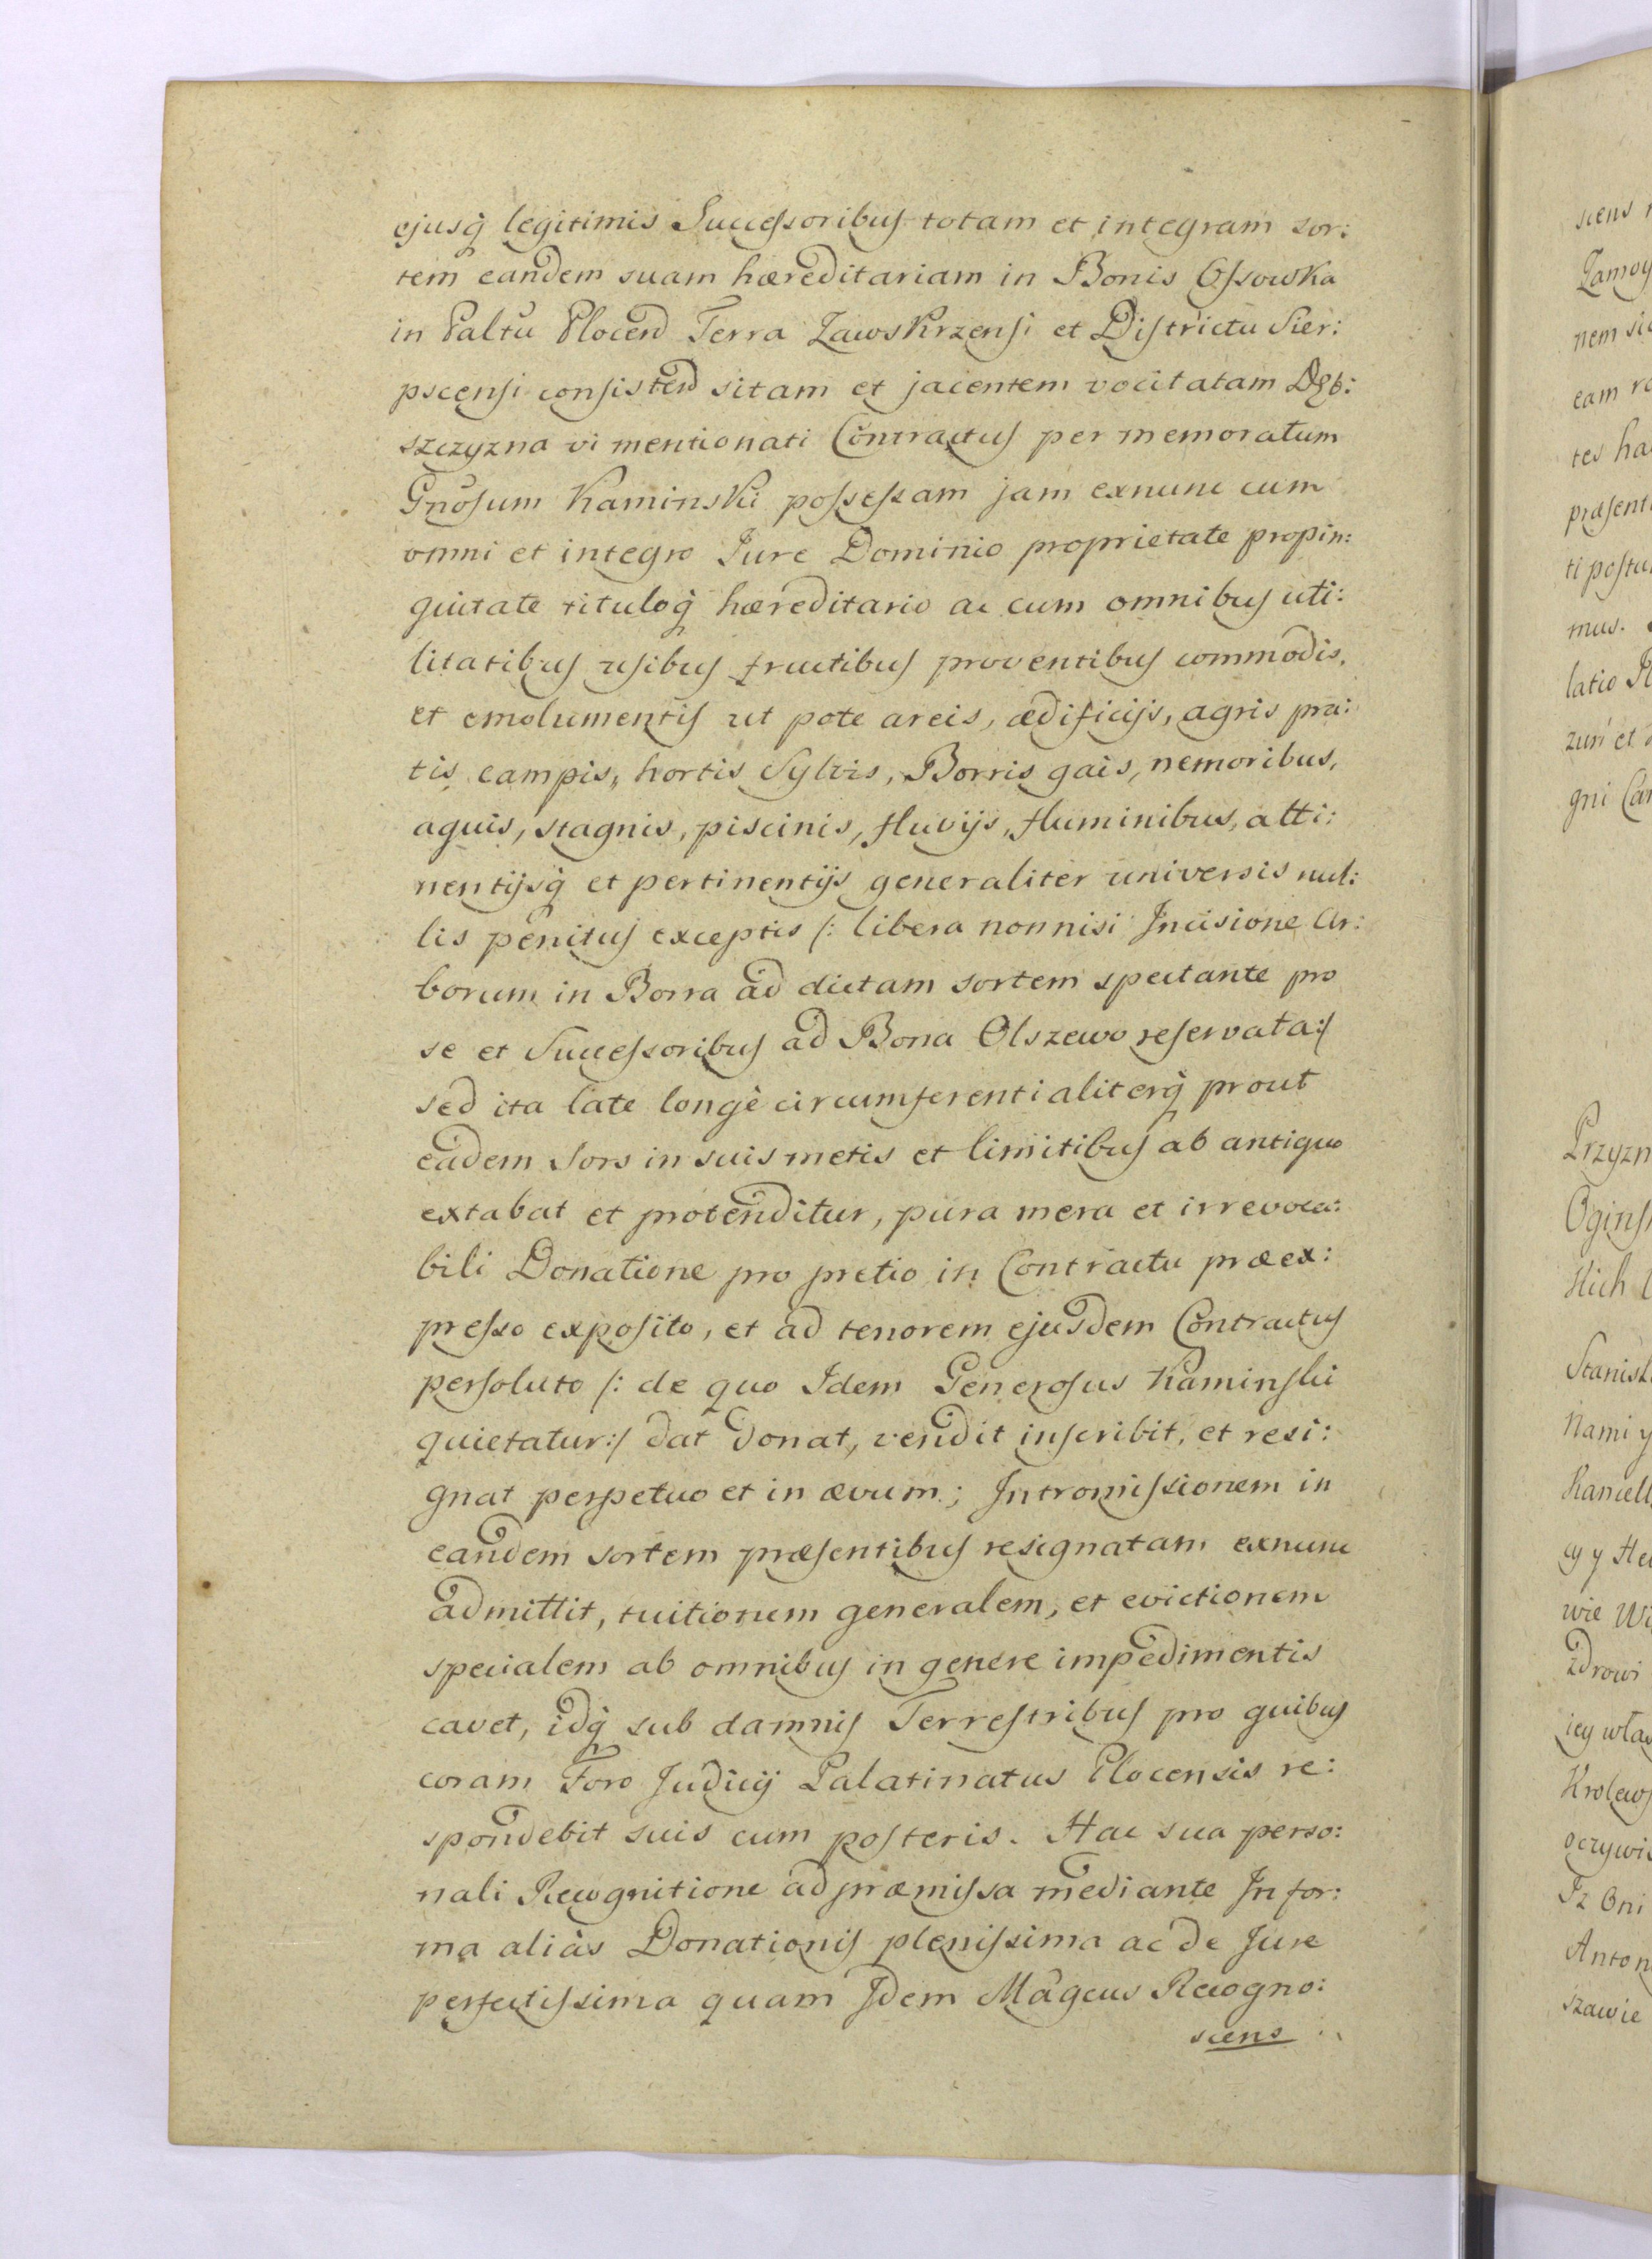 ejusq̀ legitimis Successoribus totam et integram sor:
tem eandem suam hæreditariam in Bonis Ossowka
in Paltu Plocen̄ Terra Zawskrzensi et Districtu Sier:
pscensi consisten̄ sitam et jacentem vocitatam Dęb:
szczyzna vi mentionati Contractus per memoratum
Gnōsum Kaminski possessam jam exnunc cum
omni et integro Iure Dominio proprietate propin:
quitate tituloq̀ hæreditario ac cum omnibus uti:
litatibus usibus fructibus proventibus commodis,
et emolumentis ut pote areis, ædificijs, agris pra:
tis campis, hortis Sylvis, Borris gais, nemoribus,
aquis, stagnis, piscinis, fluvijs, fluminibus, atti:
nentijsq̀ et pertinentijs generaliter universis nul:
lis penitus exceptis /: libera nonnisi Incisione Ar:
borum in Borra ad dictam sortem spectante pro
se et Successoribus ad Bona Olszewo reservata:/
sed ita late longè circumferentialiterq̀ prout
eadem Sors in suis metis et limitibus ab antiquo
extabat et protenditur, pura mera et irrevoca:
bili Donatione pro pretio in Contractu præex:
presso exposito, et ad tenorem ejusdem Contractus
persoluto /: de quo Idem Generosus Kaminski
quietatur:/ dat donat, vendit inscribit, et resi:
gnat perpetuo et in ævum; Intromissionem in
eandem sortem præsentibus resignatam exnunc
admittit, tuitionem generalem, et evictionem
specialem ab omnibus in genere impedimentis
cavet, idq̀ sub damnis Terrestribus pro quibus
coram Foro Judicij Palatinatus Plocensis re:
spondebit suis cum posteris. Hac sua perso:
nali Recognitione ad præmissa mediante In for:
ma aliàs Donationis plenissima ac de Jure
perfectissima quam Idem Mâgcus Recogno:
scens
sciens
Zamoy
nem sic
eam
tes ha
præsent
ti postu
mus.
latio
zuri et
gni Ca
Przyzn
Ogins
Stanisł
Nami y
Kancell
cy y
wie
zdrowi
jey wła
Krolews
oczywis
Iz Oni
Anton
szawie